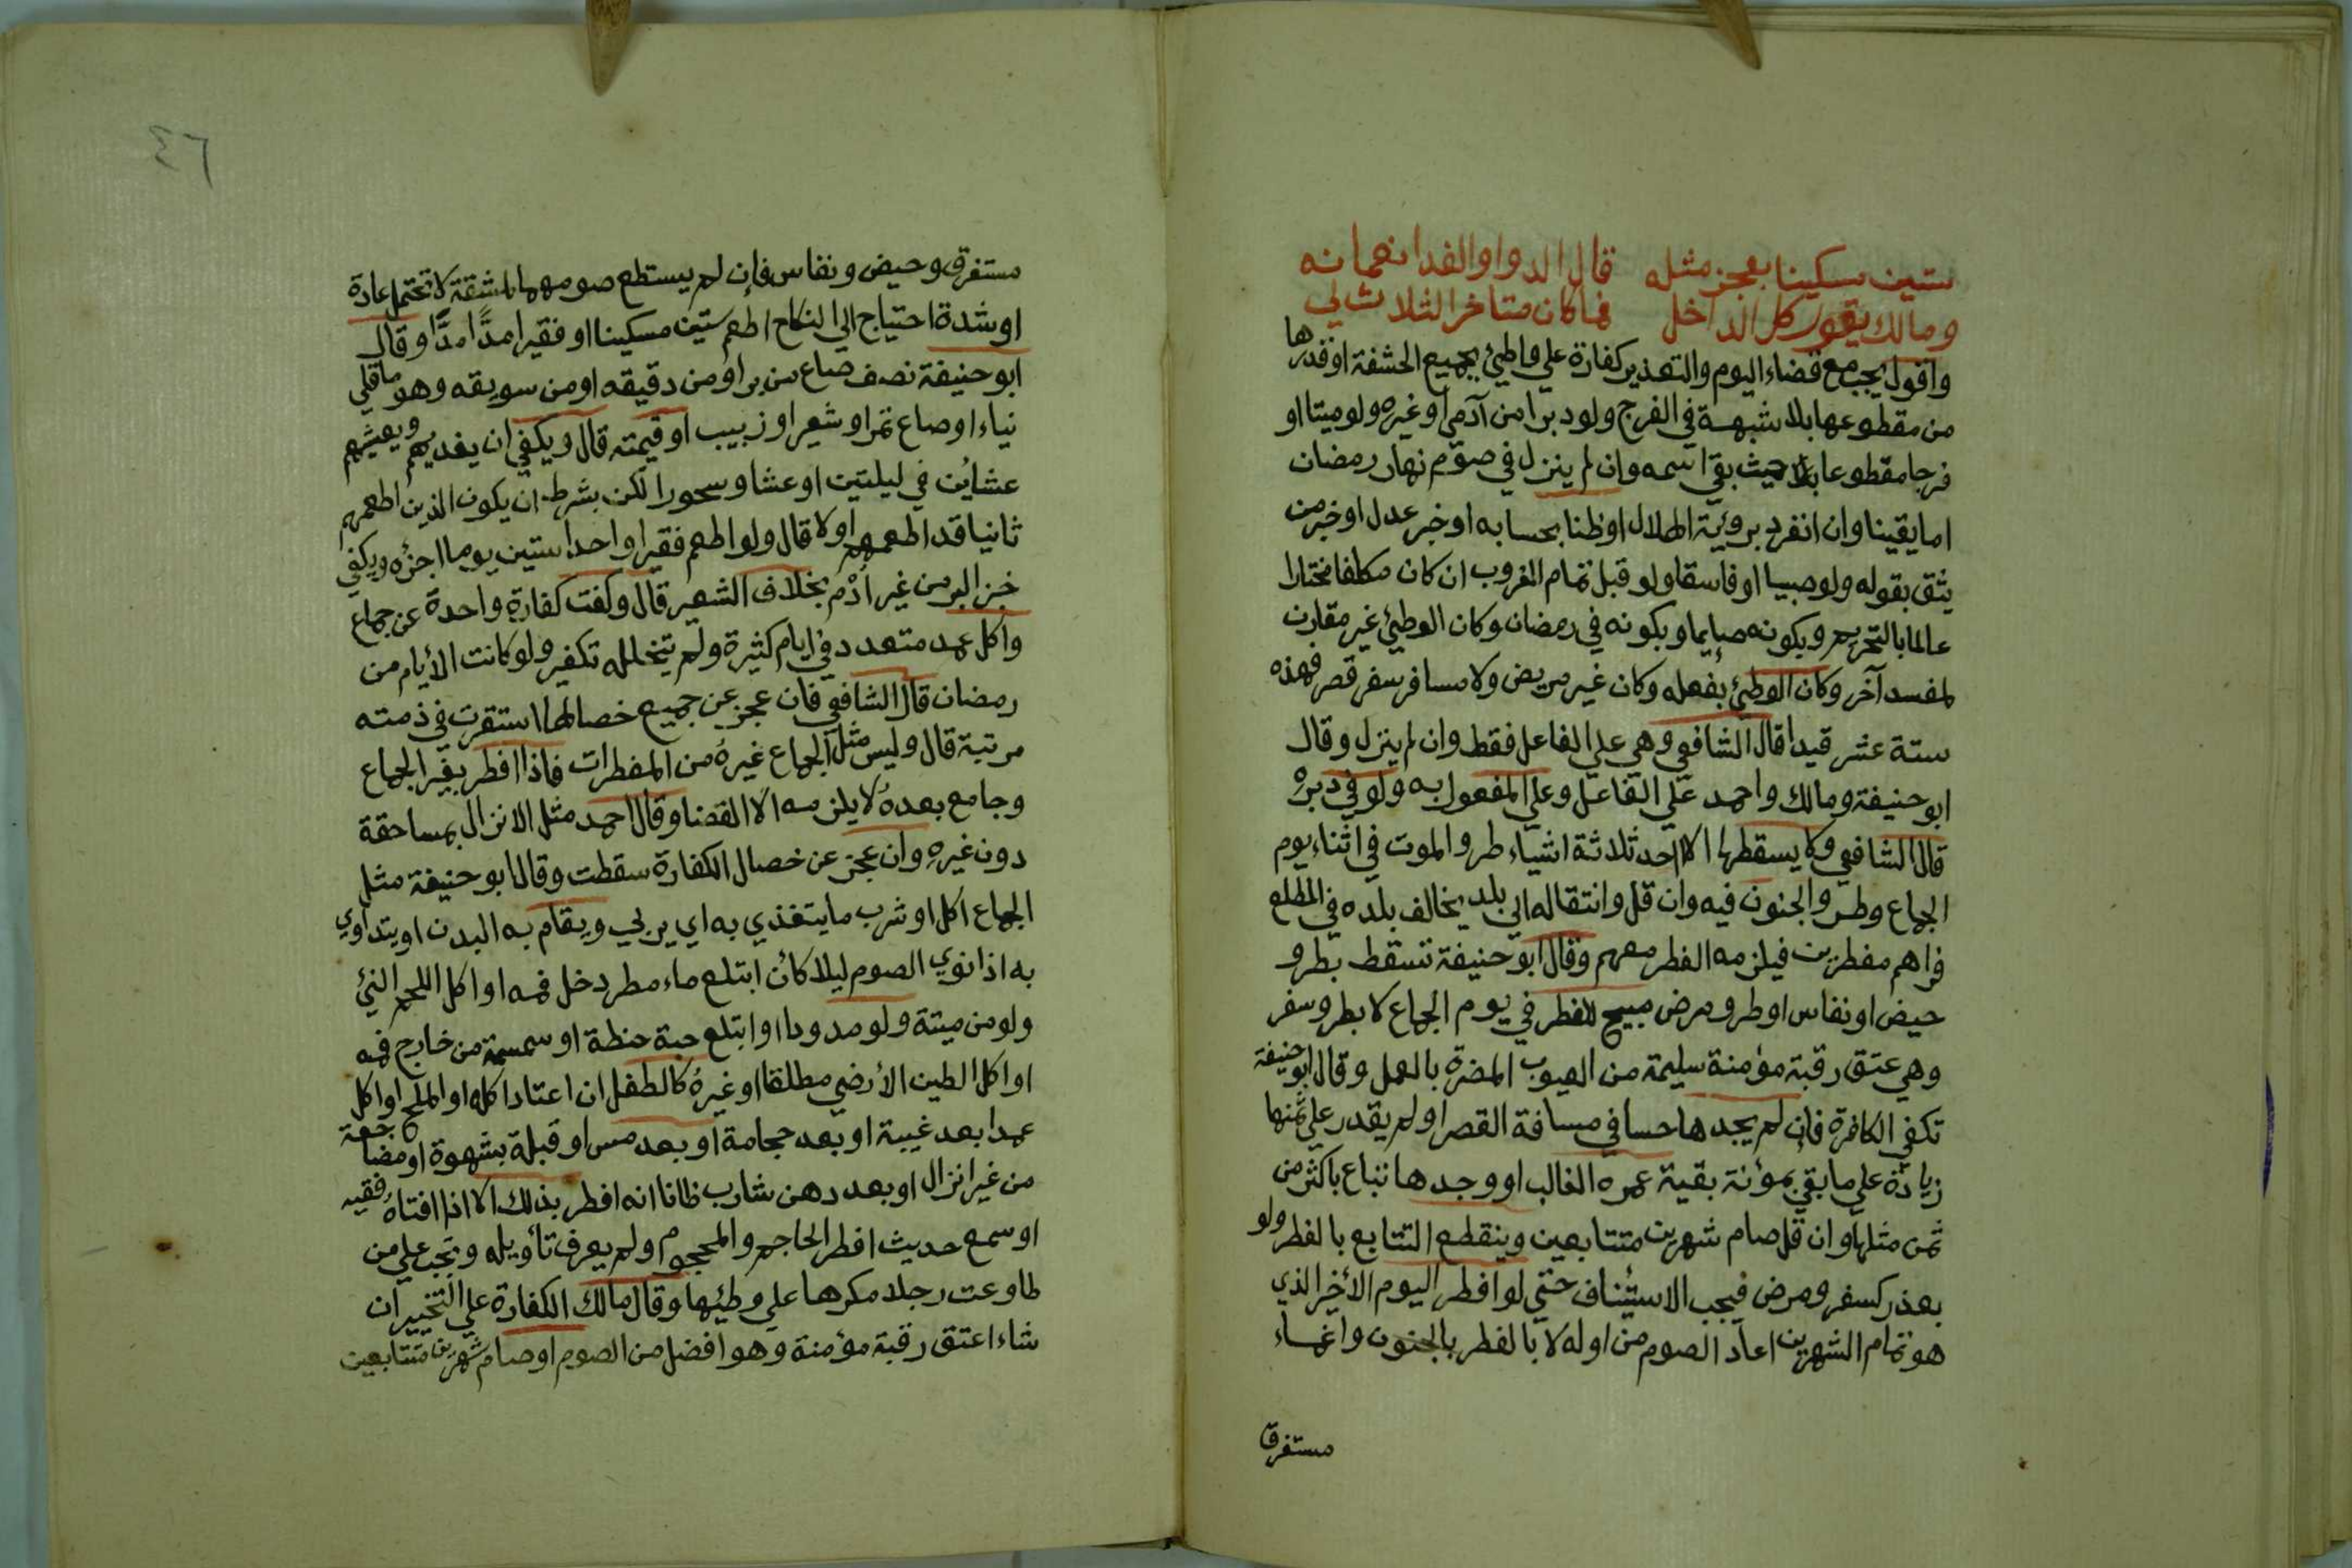 ستين مسكينا بعجز مثله قال الدوا والغدا نعمانه
ومالك يقول كل الداخل فما كان متاخر الثلاث لي
واقول يجب مع قضاء اليوم والتعذير كفارة علي واطئ بجميع الحشفة او قدرها
من مقطوعها بلا شبهة في الفرج ولو دبرا من آدمي او غيره ولو ميتا او
فرجا مقطوعا حيث بقي اسمه وان لم ينزل في صوم نهار رمضان
اما يقينا وان انفرد بروئية الهلال او ظنا بحسابه او خبر عدل او خبر من
يثق بقوله ولو صبيا او فاسقا ولو قبل تمام الغروب ان كان مكلفا مختارا
عالما بالتحريم وبكونه صايما وبكونه في رمضان وكان الوطئ غير مقارن
لمفسد آخر وكان الوطئ بفعله وكان غير مريض ولا مسافر سفر قصر فهذه
ستة عشر قيدا قال الشافعي وهي علي الفاعل فقط وان لم ينزل وقال
ابو حنيفة ومالك واحمد علي الفاعل وعلي المفعول به ولو في دبره
قال الشافعي ولا يسقطها الا احد ثلاثة اشياء طرو الموت في اثناء يوم
الجماع وطرو الجنون فيه وان قل وانتقاله الي بلد يخالف بلده في المطلع
فراهم مفطرين فيلزمه الفطر معهم وقال ابو حنيفة تسقط بطرو
حيض او نفاس او طرو مرض مبيح للفطر في يوم الجماع لا بطرو سفر
وهي عتق رقبة مؤمنة سليمة من العيوب المضرة بالعمل وقال ابو حنيفة
تكفي الكافرة فان لم يجدها حسا في مسافة القصر او لم يقدر علي ثمنها
زيادة علي ما بقي بموئنة بقية عمره الغالب او وجدها تباع باكثر من
ثمن مثلها وان قل صام شهرين متتابعين وينقطع التتابع بالفطر ولو
بعذر كسفر ومرض فيجب الاستئناف حتي لو افطر اليوم الأخير الذي
هو تمام الشهرين اعاد الصوم من اوله لا بالفطر بالجنون واغماء
مستغرق
٤٦
مستغرق وحيض ونفاس فإن لم يستطع صومهما لمشقة لا تحتمل عادة
او شدة احتياج الي النكاح اطعم ستين مسكينا او فقيرا امدًّا امدًّا وقال
ابو حنيفة نصف صاع من بر او من دقيقه او من سويقه وهو ما قلي
نياء او صاع تمر او شعير او زبيب او قيمته قال ويكفي ان يغديهم ويعشيهم
عشاين في ليلتين او عشا وسحورا لكن بشرط ان يكون الذين اطعمهم
ثانيا قد اطعمهم اولا قال ولو اطعم فقيرا واحدا ستين يوما اجزءه ويكفي
خبز البر من غير أدْم بخلاف الشعير قال وكفت كفارة واحدة عن جماع
واكل عمد متعدد في ايام كثيرة ولم يتخلله تكفير ولو كانت الأيام من
رمضان قال الشافعي فان عجز عن جميع خصالها استقرت في ذمته
مرتبة قال وليس مثل الجماع غيره من المفطرات فاذا افطر بغير الجماع
وجامع بعده لا يلزمه الا القضا وقال احمد مثل الانزال بمساحقة
دون غيره وان عجز عن خصال الكفارة سقطت وقال ابو حنيفة مثل
الجماع اكل او شرب ما يتغذي به اي يربي ويقام به البدن او يتداوي
به اذا نوي الصوم ليلا كأن ابتلع ماء مطر دخل فمه او اكل اللحم النئ
ولو من ميتة ولو مدودا او ابتلع حبة حنطة او سمسمة من خارج فمه
او اكل الطين الأرضي مطلقا او غيره كالطفل ان اعتاد اكله او الملح او اكل
عمدا بعد غيبة او بعد حجامة او بعد مس او قبلة بشهوة او مضاجعة
من غير انزال او بعد دهن شارب ظانا انه افطر بذلك الا اذا افتاه فقيه
او سمع حديث افطر الحاجم والمحجوم ولم يعرف تأويله وتجب علي من
طاوعت رجلا مكرها علي وطئها وقال مالك الكفارة علي التخيير ان
شاء اعتق رقبة مؤمنة وهو افضل من الصوم او صام شهرين متتابعين